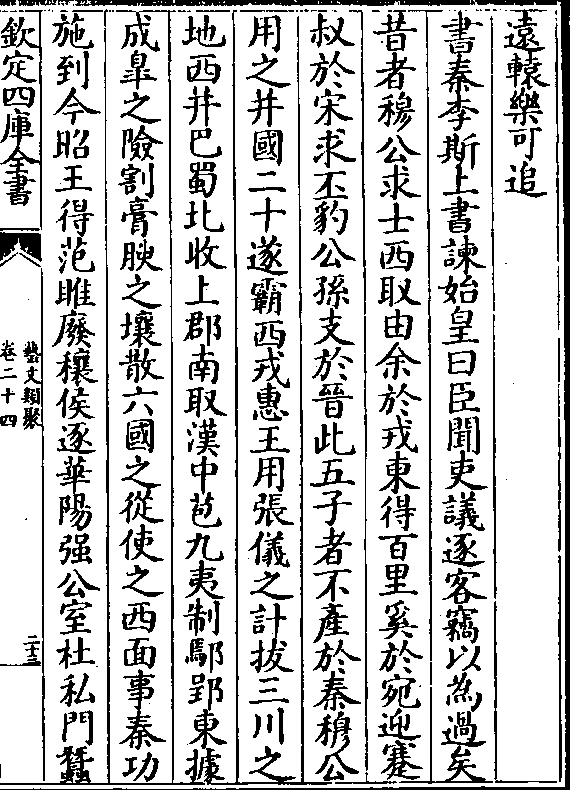 遠轅樂可追
書秦李斯上書諫始皇曰臣聞吏議逐客竊以為過矣
昔者穆公求士西取由余於戎東得百里奚於宛迎蹇
叔於宋求丕豹公孫支於晉此五子者不產於秦穆公
用之并國二十遂霸西戎惠王用張儀之計拔三川之
地西并巴蜀北收上郡南取漢中苞九夷制鄢郢東據
成臯之險割膏腴之壤散六國之從使之西面事秦功
施到今昭王得范雎廢穰侯逐華陽强公室杜私門蠶
欽定四庫全書
藝文類聚
卷二十四
二十三